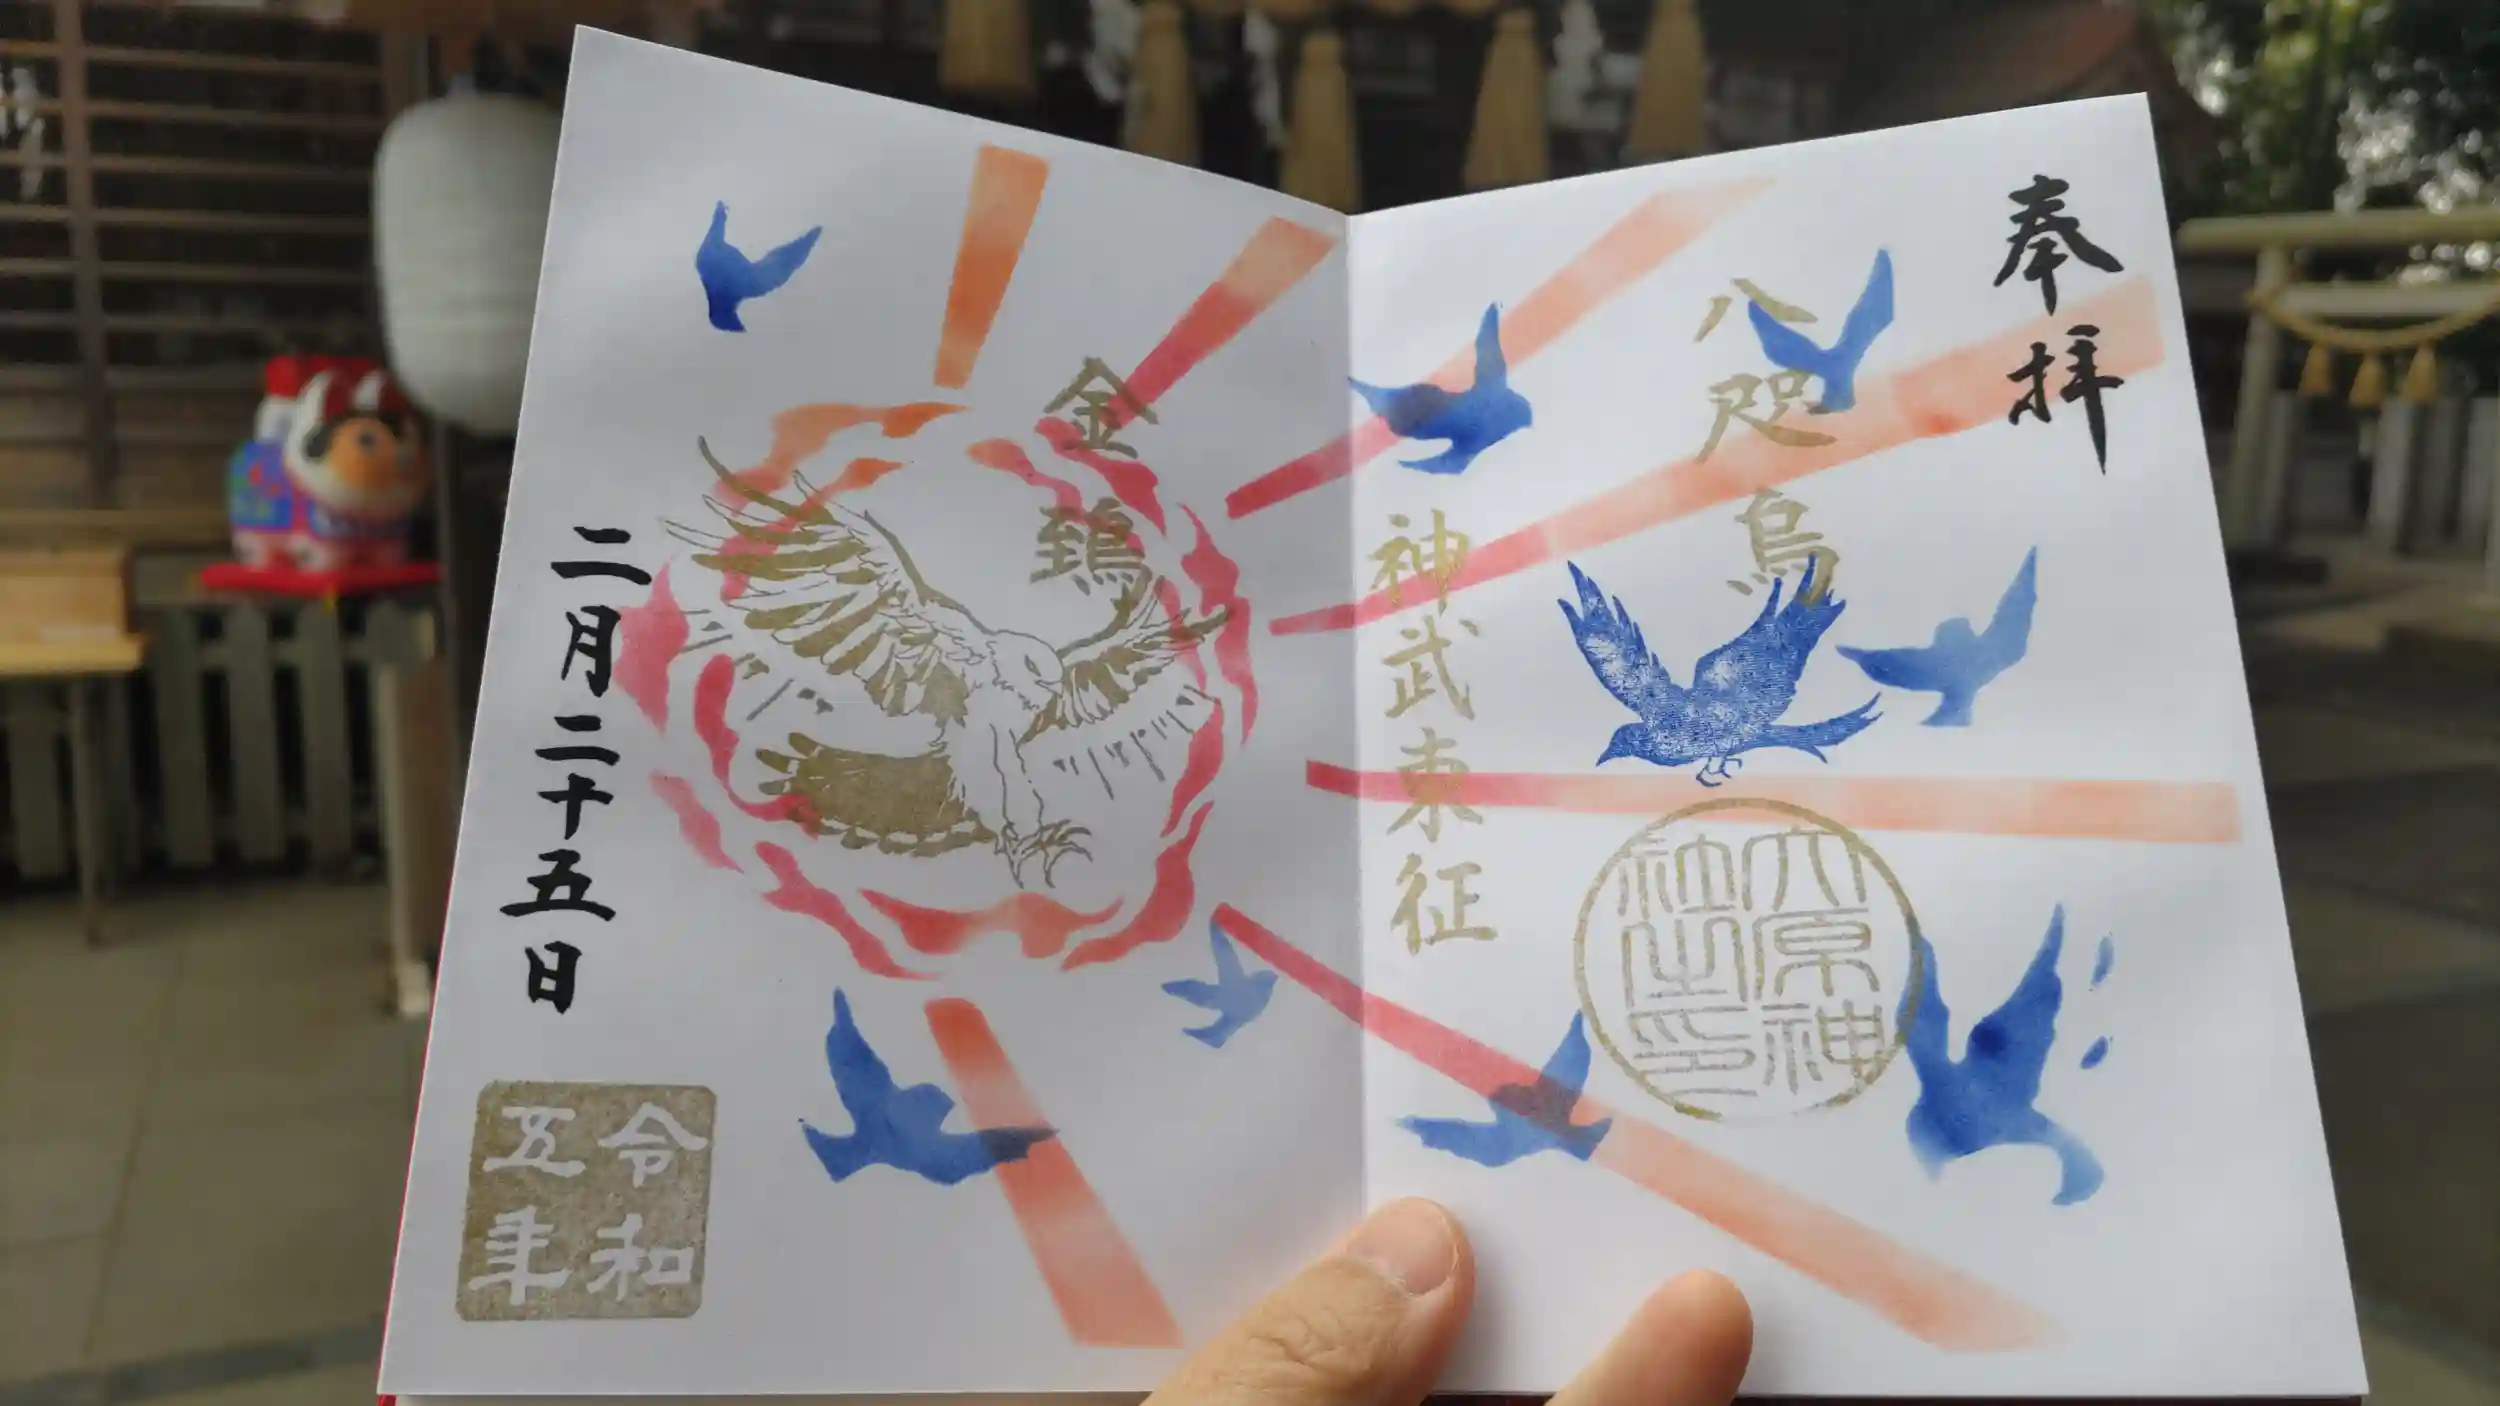 奉拝
八咫烏
神武東征
大原神
社之印
金鵄
二月二十五日
令和
五年